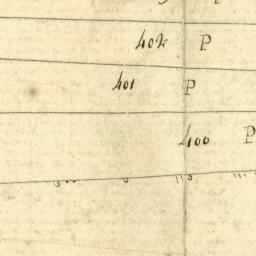 402 P
401 P
400 P